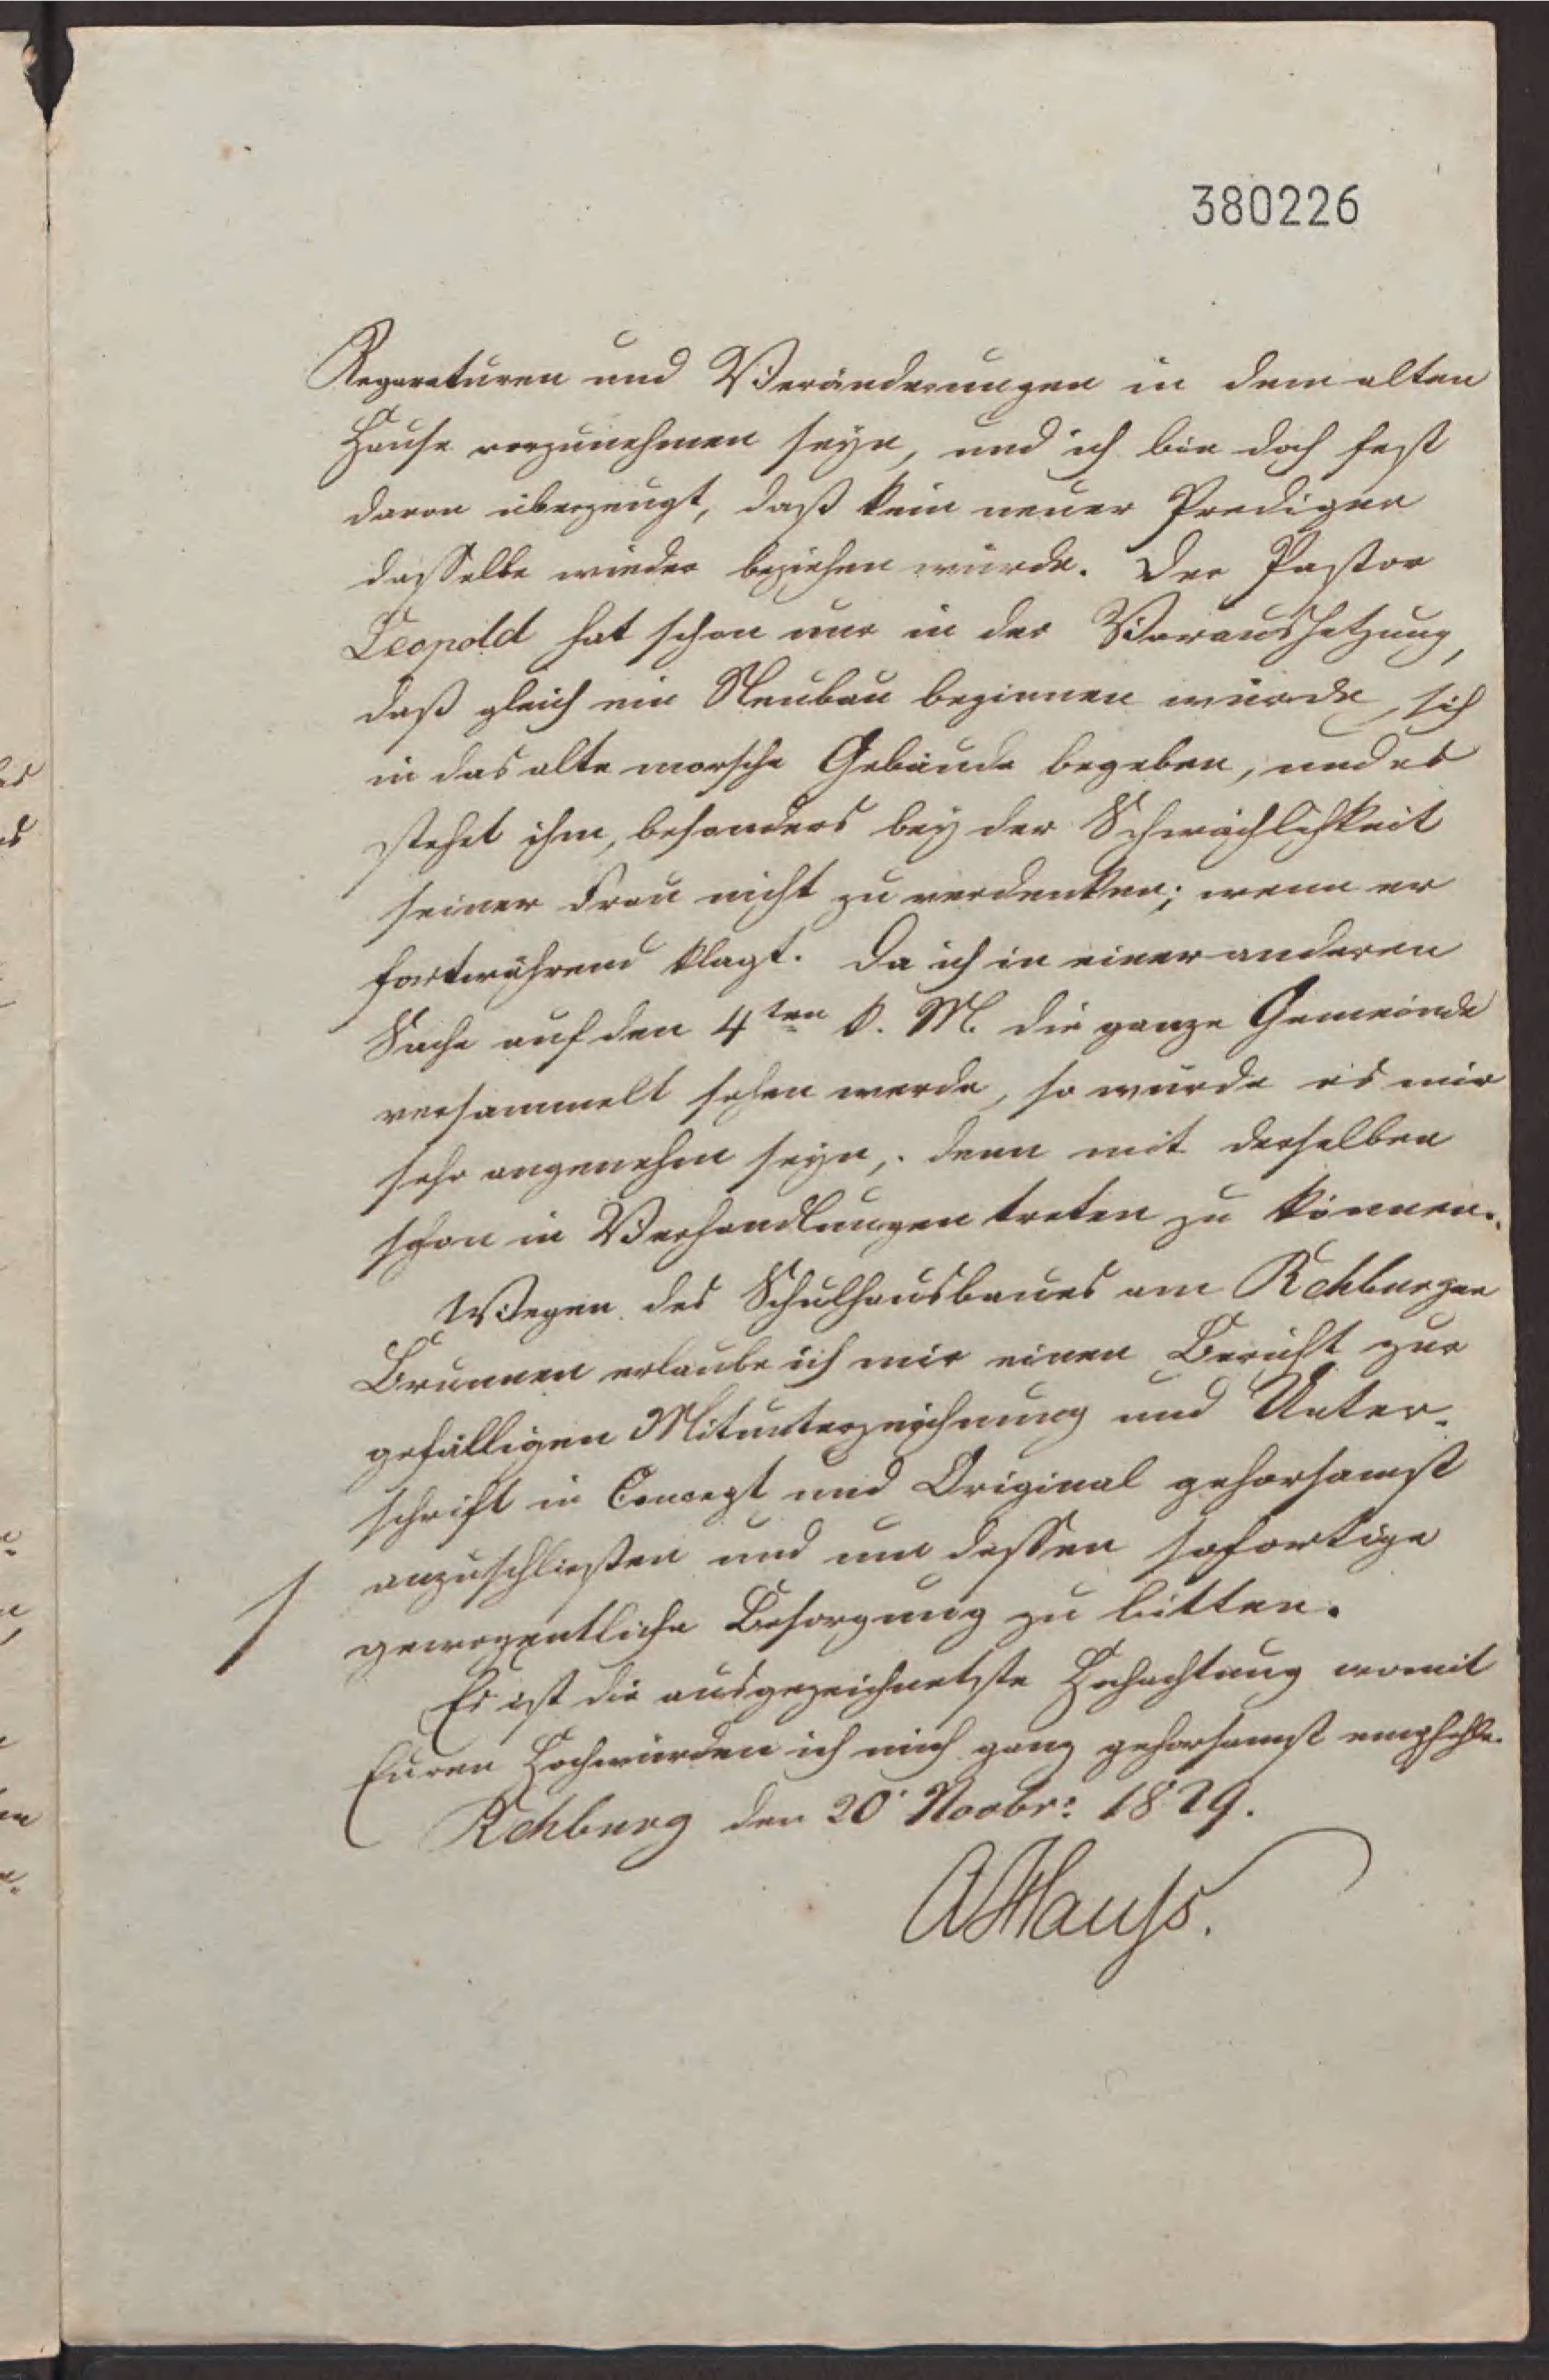 380226
Reparaturen und Veränderungen in dem alten
Hause vorzunehmen seyn, und ich bin doch fest
davon überzeugt, daß kein neuer Prediger
dasselbe wieder beziehen würde. Der Pastor
Leopold hat schon nur in der Voraussetzung,
daß gleich ein Neubau beginnen würde, sich
in das alte morsche Gebäude begeben, und es
stehet ihm, besonders bey der Schwächlichkeit
seiner Frau nicht zu verdenken; wenn er
fortwährend klagt. Da ich in einer anderen
Sache auf den 4ten k. M. die ganze Gemeinde
versammelt sehen werde, so würde es mir
sehr angenehm seyn, denn mit derselben
schon in Verhandlungen treten zu können.
Wegen des Schulhausbaues am Rehburger
Brunnen erlaube ich mir einen Bericht zur
gefälligen Mitunterzeichnung und Unter-
schrift in Concept und Original gehorsamst
anzuschließen und um dessen sofortige
gewogentliche Besorgung zu bitten.
Es ist die ausgezeichnetste Hochachtung womit
Euren Hochwürden ich mich ganz gehorsamst empfehle.
Rehburg den 20. Novbr: 1829.